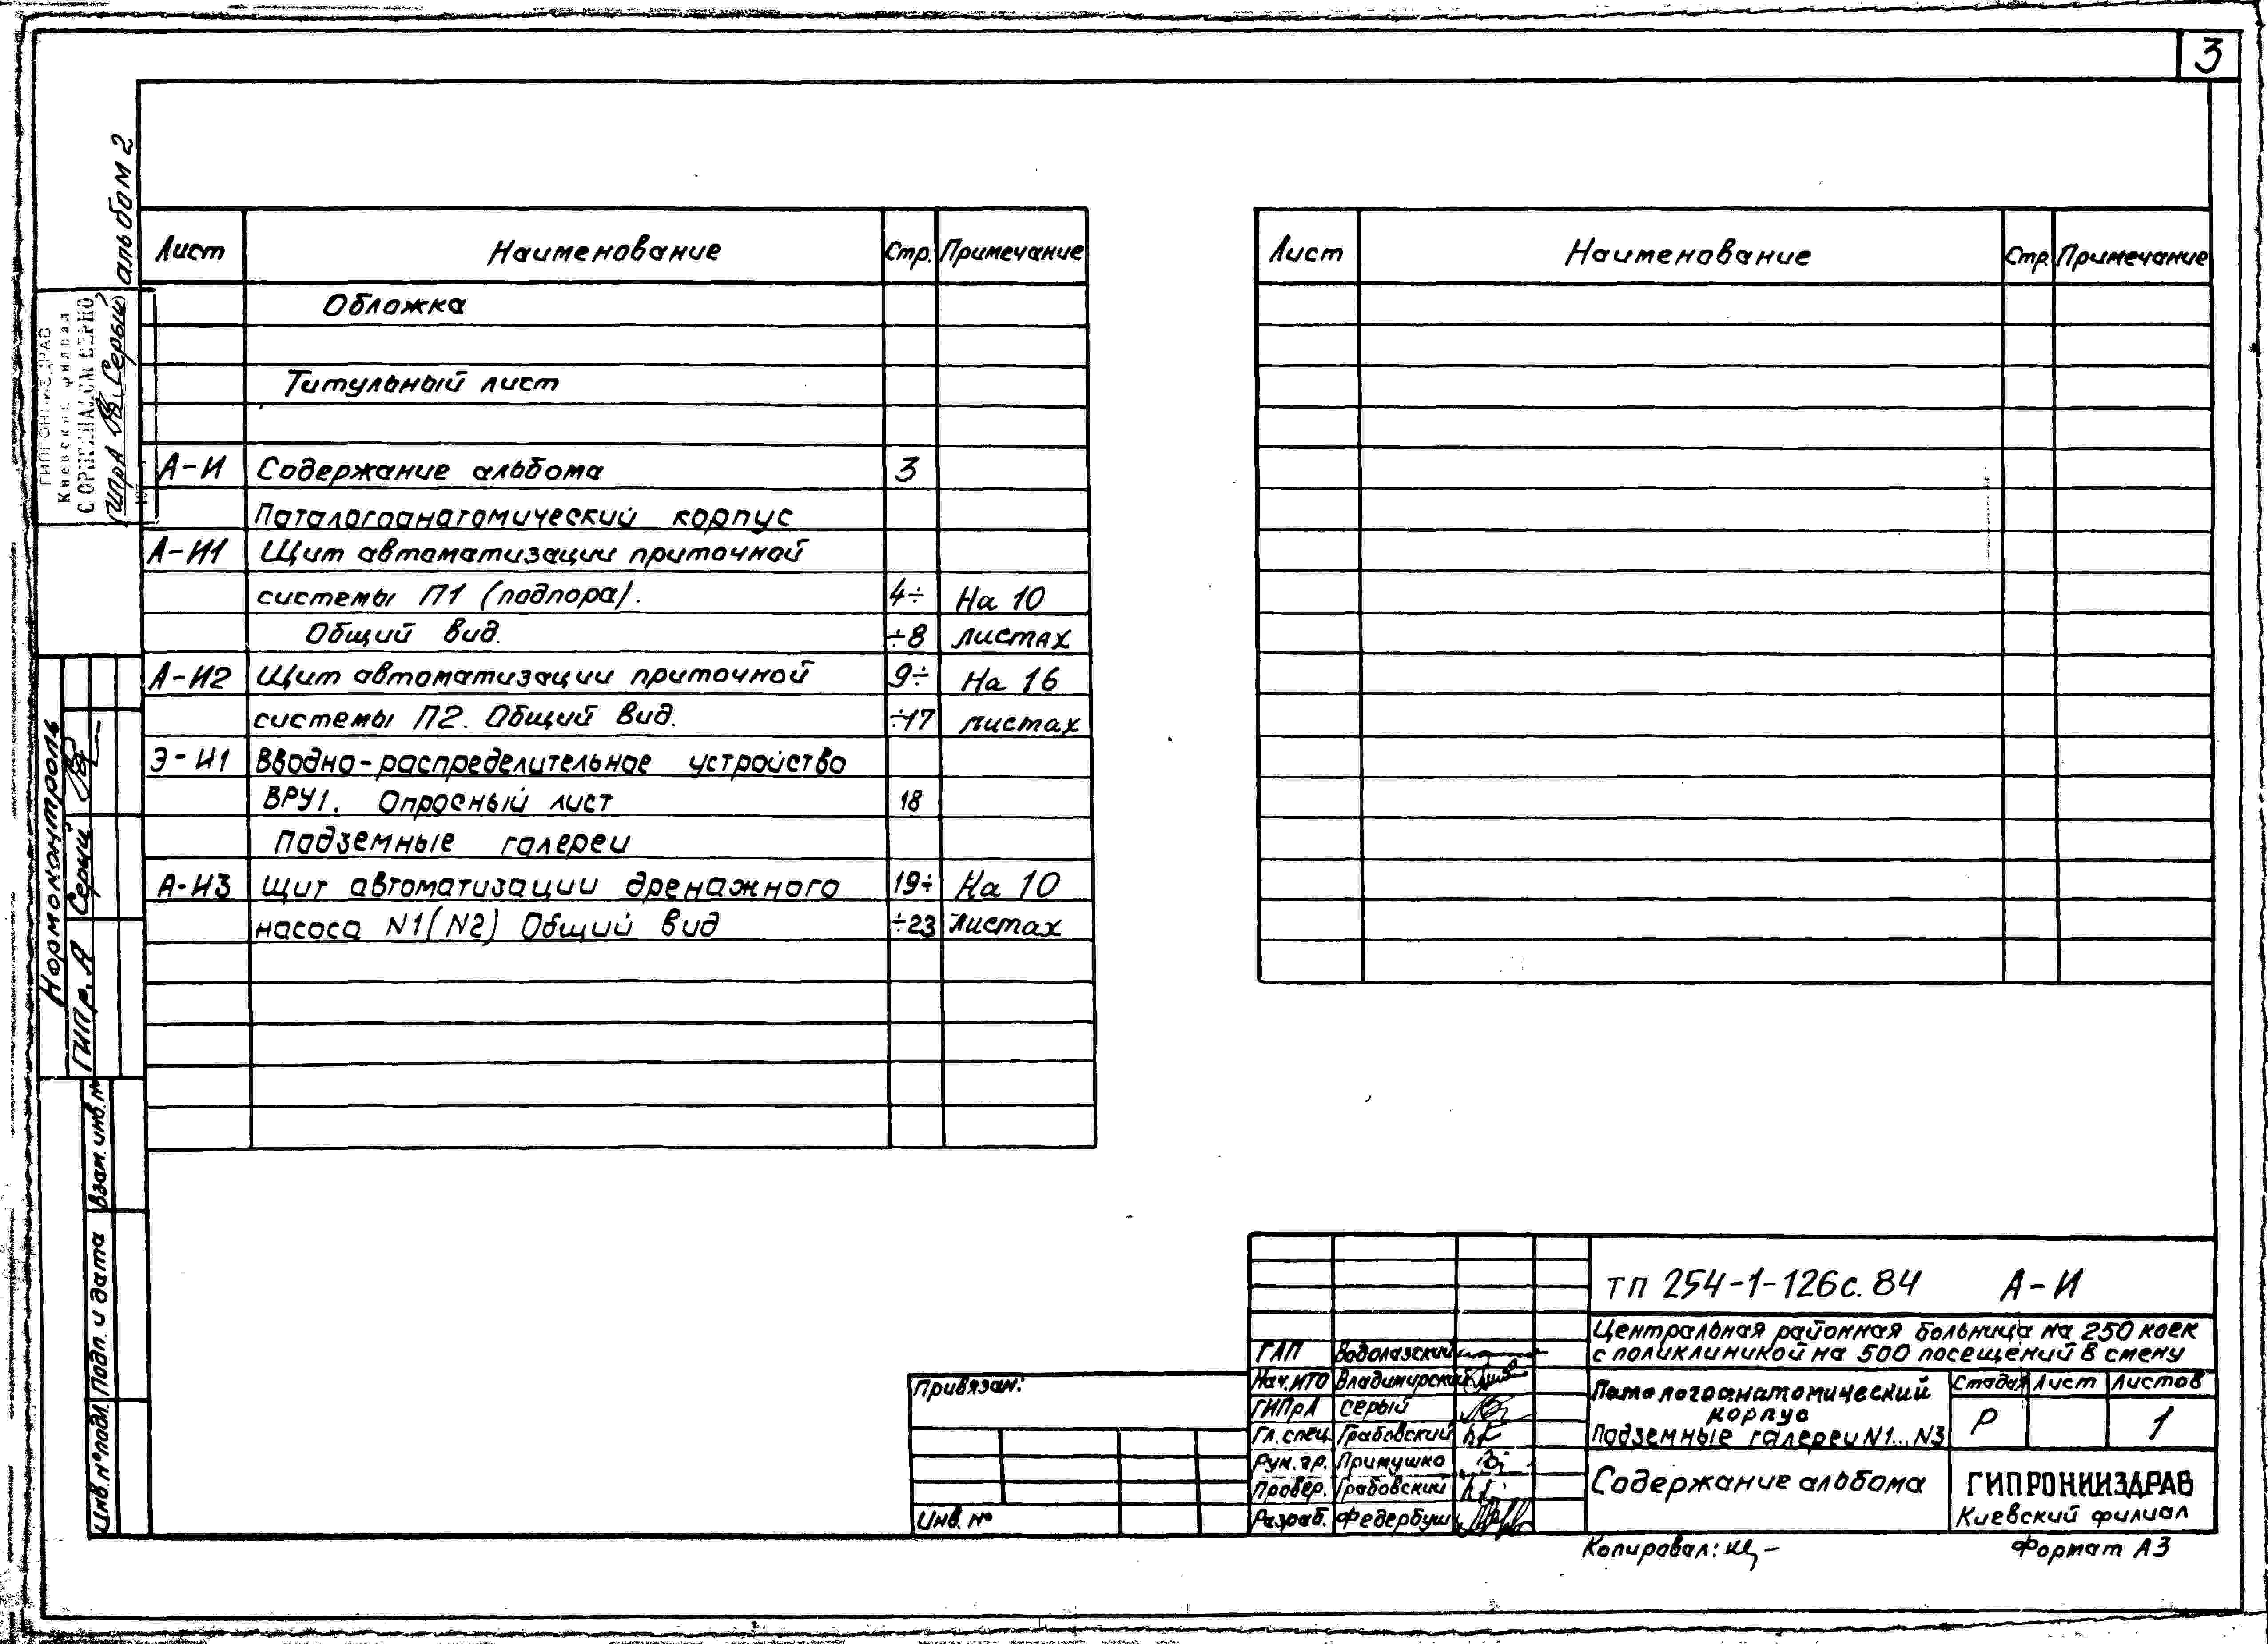 3
альбом 2
Лист Наименование Стр. Примечание
Обложка
Титульный лист
А-И Содержание альбома 3
Паталогоанатомический корпус
А-И1 Щит автоматизации приточной
системы П1 (подпора). 4÷ На 10
Общий вид. ÷8 листах
А-И2 Щит автоматизации приточной 9÷ На 16
системы П2. Общий вид. ÷17 листах
Э-И1 Вводно-распределительное устройство
ВРУ1. Опросный лист 18
Подземные галереи
А-И3 Щит автоматизации дренажного 19÷ На 10
насоса N1(N2) Общий вид ÷23 листах
Лист Наименование Стр Примечание
Киевский филиал
С ОРИГИНАЛОМ ВЕРНО
ГИПрА Серый
Нормоконтроль
ГИПр.А Серый
Взам. инв. №
Подп. и дата
Инв. № подл.
Привязан:
Инв. №
ГАП Водолазский
Нач. ИТО Владимирский
ГИПрА Серый
Гл. спец Грабовский
Рук. гр. Примушко
Провер. Грабовский
Разраб. Федербуш
тп 254-1-126с.84 А-И
Центральная районная больница на 250 коек
с поликлиникой на 500 посещений в смену
Паталогоанатомический
корпус
Подземные галереи N1...N3
Стадия Лист Листов
Р 1
Содержание альбома
ГИПРОНИИЗДРАВ
Киевский филиал
Копировал:
Формат А3